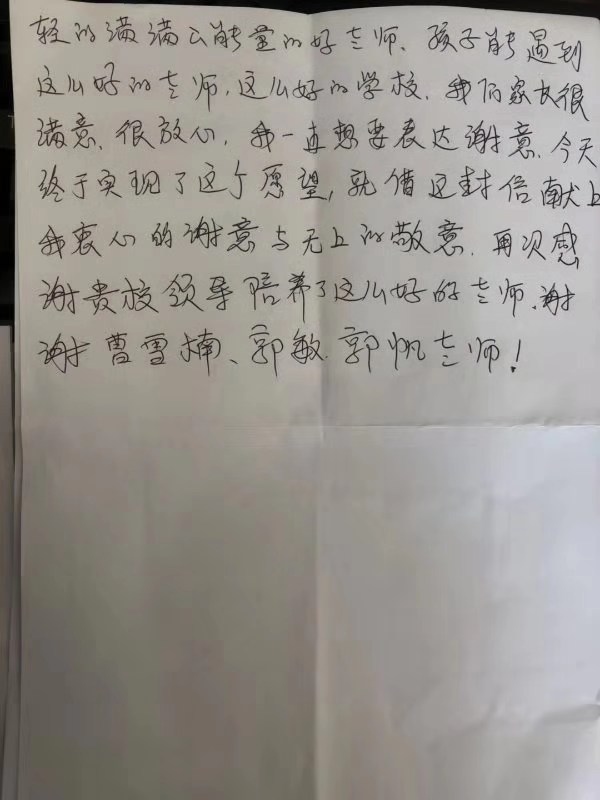 轻的满满正能量的好老师、孩子能遇到
这么好的老师,这么好的学校,我们家长很
满意、很放心,我一直想要表达谢意,今天
终于实现了这个愿望,就借这封信献上
我衷心的谢意与无上的敬意,再次感
谢贵校领导陪养了这么好的老师,谢
谢曹雪楠、郭敏、郭帆老师!